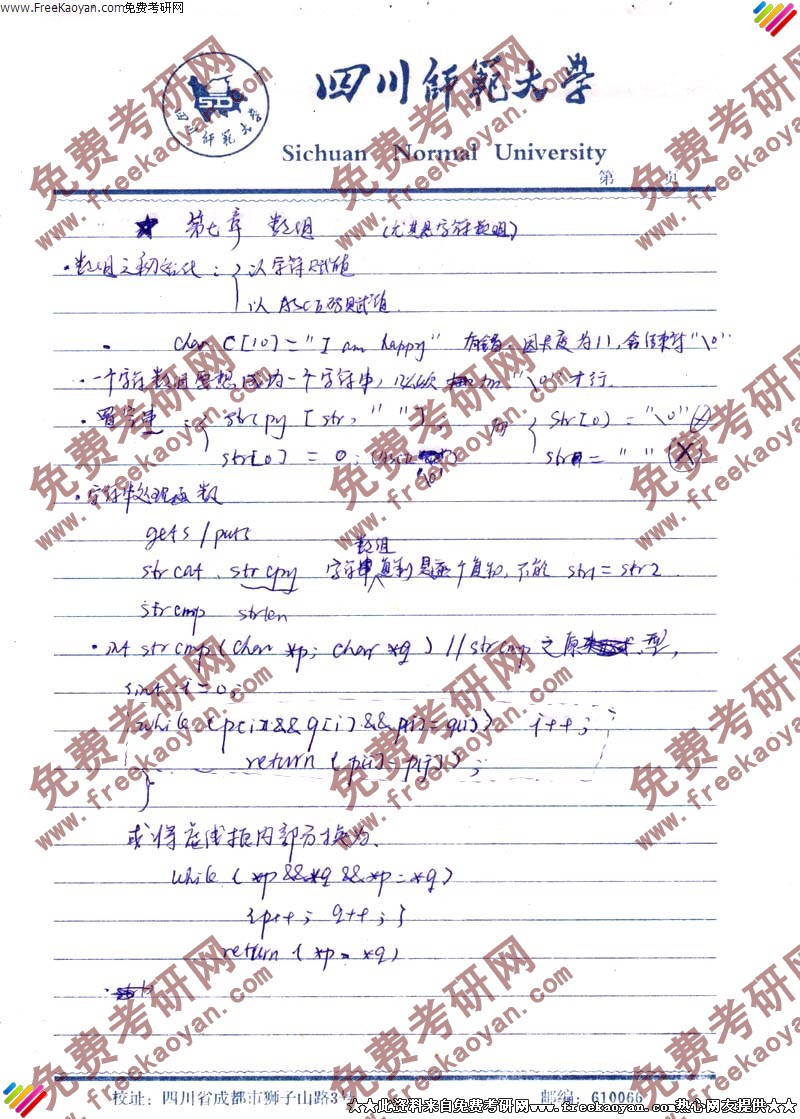 www.FreeKaoyan.com免费考研网
四川師範大學
Sichuan Normal University
第 页
第七章 数组 (尤其是字符数组)
·数组之初始化: 以字符赋值
以ASCII码赋值
· char C[10]="I am happy" 有错,因长度为11,含结束符"\0"
·一个字符数组要想成为一个字符串,必须 加"\0"才行.
·置空串: strcpy [str, " "], 而 str[0]="\0"
str[0] = 0; str = " " (X)
"\0"
·字符串处理函数
gets / puts
数组
strcat、strcpy 字符串复制是逐个复制,不能 str1 = str2
strcmp strlen
·int strcmp(char *p; char *q) // strcmp之原型,
{int i=0;
while (p[i]&&q[i]&&p[i]=q[i]) i++;
return (p[i]-p[j]);
}
或将虚线框内部分换为、
while (*p &&*q &&*p=*q)
{p++; q++;}
return (*p-*q)
校址:四川省成都市狮子山路3号 邮编:610066
★☆★此资料来自免费考研网www.freekaoyan.com热心网友提供★☆★
免费考研网
www.freekaoyan.com